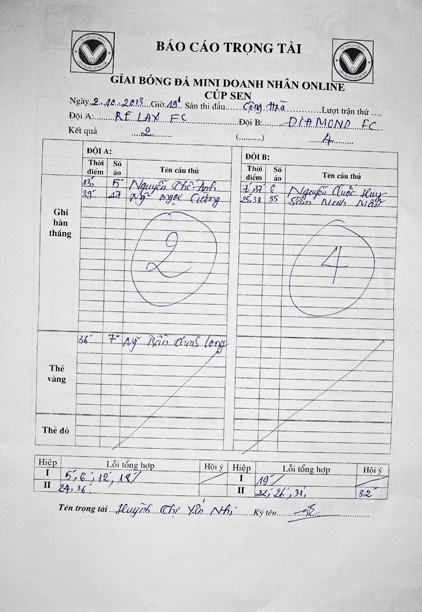 BÁO CÁO TRỌNG TÀI
GIẢI BÓNG ĐÁ MINI DOANH NHÂN ONLINE
CÚP SEN
Ngày 2.10.2013 Giờ 19h Sân thi đấu Cộng Hoà Lượt trận thứ
Đội A: RELAX FC Đội B: DIAMOND FC
Kết quả 2 (..........) 4
ĐỘI A: ĐỘI B:
Thời điểm Số áo Tên cầu thủ Thời điểm Số áo Tên cầu thủ
Ghi bàn thắng
5 Nguyễn Thế Anh Nguyễn Quốc Huy
17 Ng Ngọc Cường 25,38 95
2 4
Thẻ vàng
36 7 Ng Long
Thẻ đỏ
Hiệp Lỗi tổng hợp Hội ý Hiệp Lỗi tổng hợp Hội ý
I 5, 6, 12, 18 I 19
II 24, 36 II 22, 26, 38 32
Tên trọng tài Huỳnh Thị Yến Nhi Ký tên